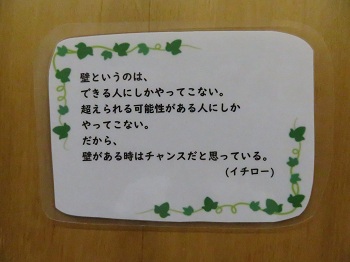 壁というのは、
できる人にしかやってこない。
超えられる可能性がある人にしか
やってこない。
だから、
壁がある時はチャンスだと思っている。
(イチロー)